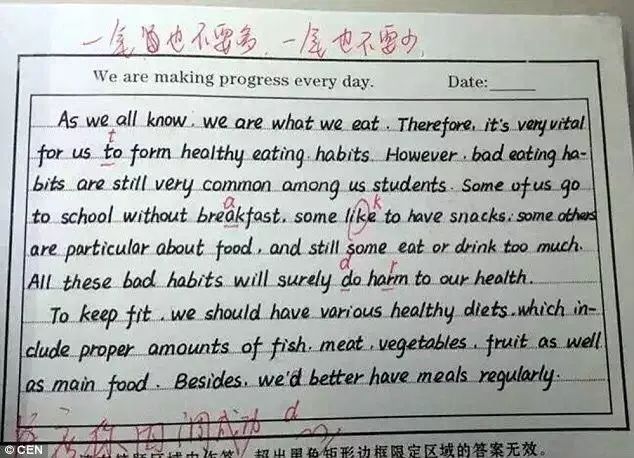 一尾留也不要多，一尾也不要少
We are making progress every day. Date:
t
As we all know, we are what we eat. Therefore, it's very vital
for us to form healthy eating habits. However, bad eating ha-
bits are still very common among us students. Some of us go
a k
to school without breakfast, some like to have snacks; some others
are particular about food, and still some eat or drink too much.
d r
All these bad habits will surely do harm to our health.
To keep fit, we should have various healthy diets, which in-
clude proper amounts of fish, meat, vegetables, fruit as well
as main food. Besides, we'd better have meals regularly.
成功 d
超出黑色矩形边框限定区域的答案无效。
© CEN